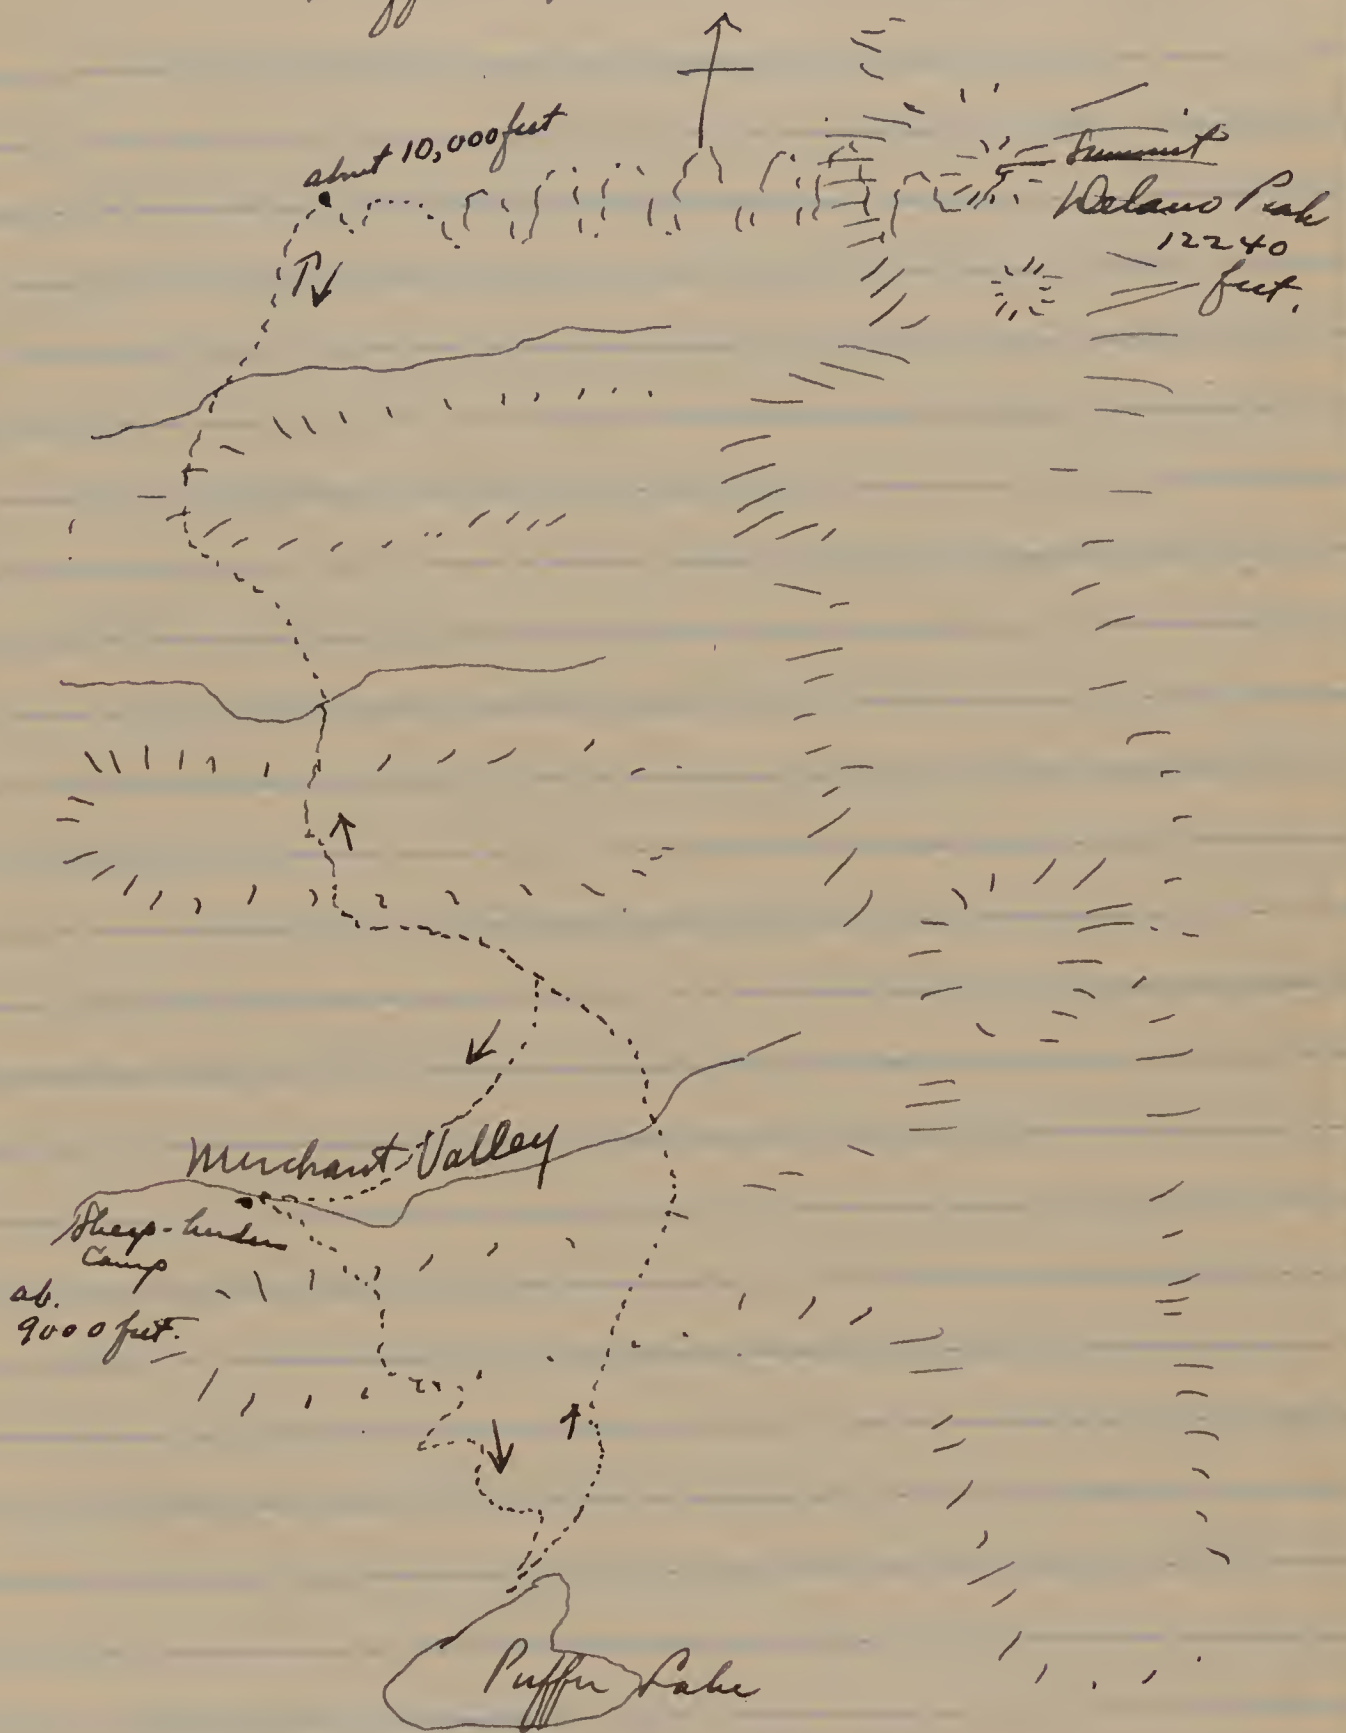 about 10,000 feet
Summit
Delano Peak
12240
feet.
Merchant Valley
Sheep-herders
Camp
ab.
9000 feet.
Puffer Lake